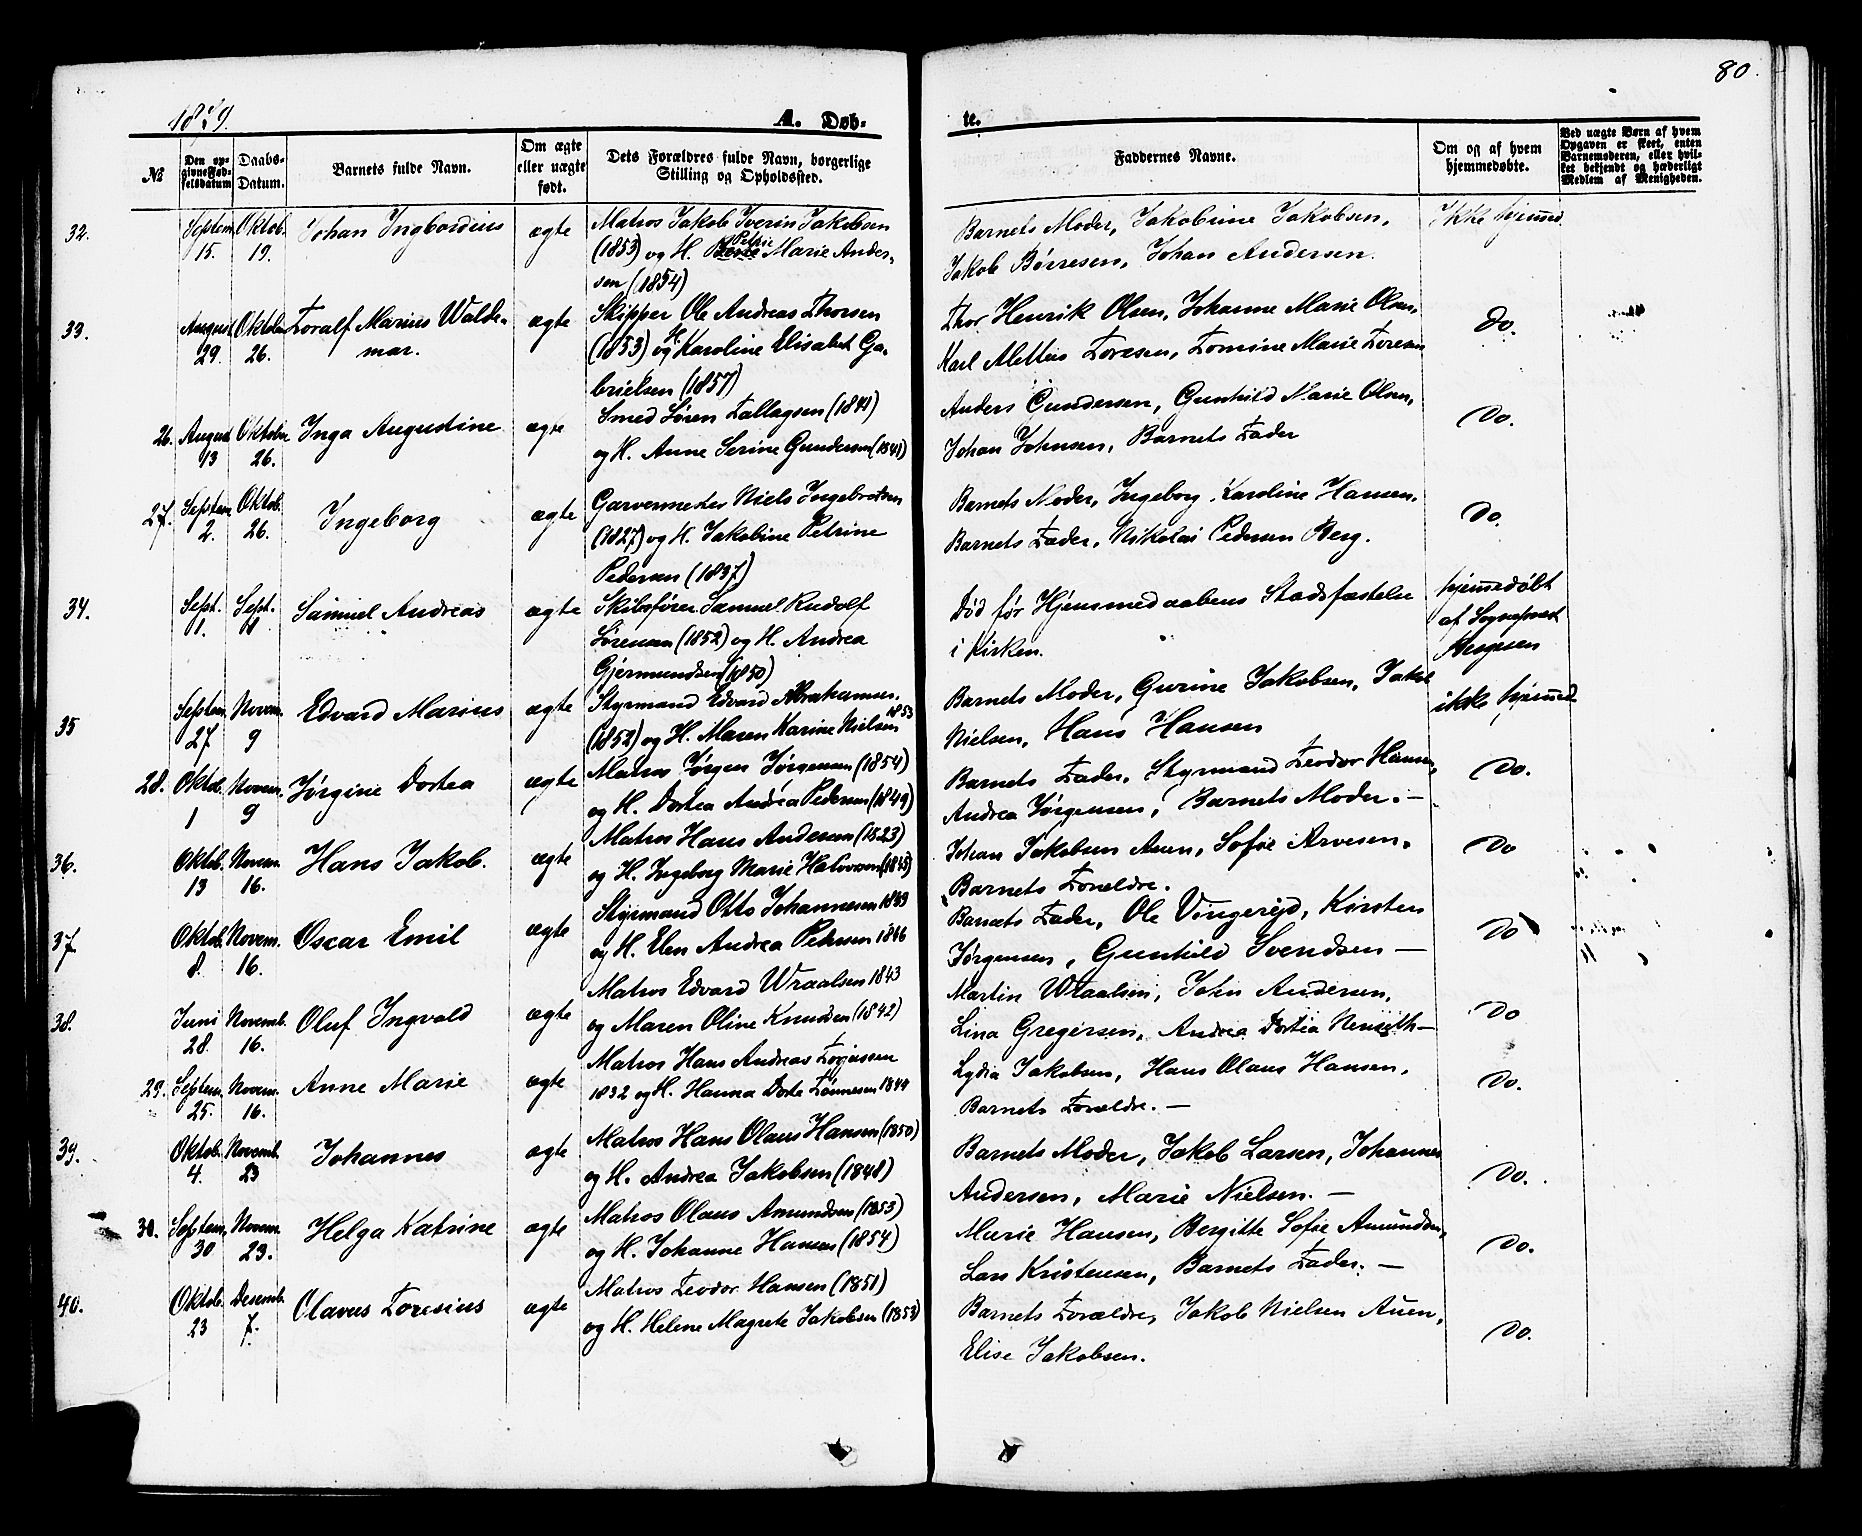 80.
1879. A. Døb- te.
№ Den opgivne Fødselsdatum Daabs-Datum. Barnets fulde Navn. Om ægte eller uægte født. Dets Forældres fulde Navn, borgerlige Stilling og Opholdssted. Faddernes Navne. Om og af hvem hjemmedøbte. Ved uægte Børn af hvem Opgaven er skeet, enten Barnemoderen, eller hvilket bekjendt og hæderligt Medlem af Menigheden.
32. Septem. 15. Oktob. 19. Johan Ingbordius ægte Matros Jakob Iverin Jakobsen
(1853) og H. Petrie Marie Ander-
sen (1854)
Barnets Moder, Jakobine Jakobsen,
Jakob Børresen, Johan Andersen.
Ikke hjemmed.
33. August 29. Oktober 26. Toralf Marius Walde-
mar.
ægte Skipper Ole Andreas Thorsen
(1853) og H. Karoline Elisabet Ga-
brielsen (1857)
Thor Henrik Olsen, Johanne Marie Olsen,
Karl Mettius Toresen, Tomine Marie Toresen
Do.
26. August 13 Oktober 26. Inga Augustine ægte Smed Søren Tallagsen (1841)
og H. Anne Serine Gundersen (1841)
Anders Gundersen, Gunhild Marie Olsen,
Johan Johnsen, Barnets Fader
Do.
27. Septem 2. Oktob. 26. Ingeborg ægte Garvermester Niels Ingebretsen
(1827) og H. Jakobine Petrine
Pedersen (1837)
Barnets Moder, Ingeborg Karoline Hansen,
Barnets Fader, Nikolai Pedersen Berg.
Do.
34. Sept. 1. Sept. 11 Samuel Andreas ægte Skibsfører Samuel Rudolf
Sørensen (1852) og H. Andrea
Gjermundsen (1850)
Død før Hjemmedaabens Stadfæstelse
i Kirken.
hjemmedøbt
af Sognepræst
35 Septem. 27 Novem. 9 Edvard Marius ægte Styrmand Edvard Abrahamsen
(1852) og H. Maren Karine Nielsen 1853
Barnets Moder, Gurine Jakobsen, Jakob
Nielsen, Hans Hansen
ikke hjemmed
28. Oktob. 1 Novem. 9 Jørgine Dortea ægte Matros Jørgen Jørgensen (1854)
og H. Dortea Andrea Pedersen (1849)
Barnets Fader, Styrmand Teodor Hansen,
Andrea Jørgensen, Barnets Moder. —
Do.
36. Oktob. 13 Novem. 16. Hans Jakob. ægte Matros Hans Andersen (1823)
og H. Ingeborg Marie Halvorsen (1845)
Johan Jakobsen Auen, Sofie Arvesen,
Barnets Forældre.
Do
37. Oktob. 8. Novem. 16. Oscar Emil ægte Styrmand Otto Johannesen 1849
og H. Elen Andrea Pedersen 1846
Barnets Fader, Ole Vingerejd, Kirsten
Jørgensen, Gunhild Svendsen —
Do
38. Juni 28. Novemb. 16. Oluf Ingvald ægte Matros Edvard Wraalsen 1843
og Maren Oline Knudsen (1842)
Martin Wraalsen, John Andersen,
Lina Gregersen, Andrea Dortea —
Do
29. Septem. 25. Novem. 16. Anne Marie ægte Matros Hans Andreas Torjussen
1832 og H. Hanna Dorte Tønnesen 1844
Lydia Jakobsen, Hans Olaus Hansen,
Barnets Forældre. —
Do.
39. Oktob. 4. Novemb. 23 Johannes ægte Matros Hans Olaus Hansen (1850)
og H. Andrea Jakobsen (1848)
Barnets Moder, Jakob Larsen, Johannes
Andersen, Marie Nielsen. —
Do.
30. Septem. 30 Novem. 23. Helga Katrine ægte Matros Olaus Amundsen (1853)
og H. Johanne Hansen (1854)
Marie Hansen, Bergitte Sofie Amundsen,
Lars Kristensen, Barnets Fader. —
Do.
40. Oktob. 23 Desemb. 7. Olavus Toresius ægte Matros Teodor Hansen (1851)
og H. Helene Magrete Jakobsen (1853)
Barnets Forældre, Jakob Nielsen Auen,
Elise Jakobsen.
Do.